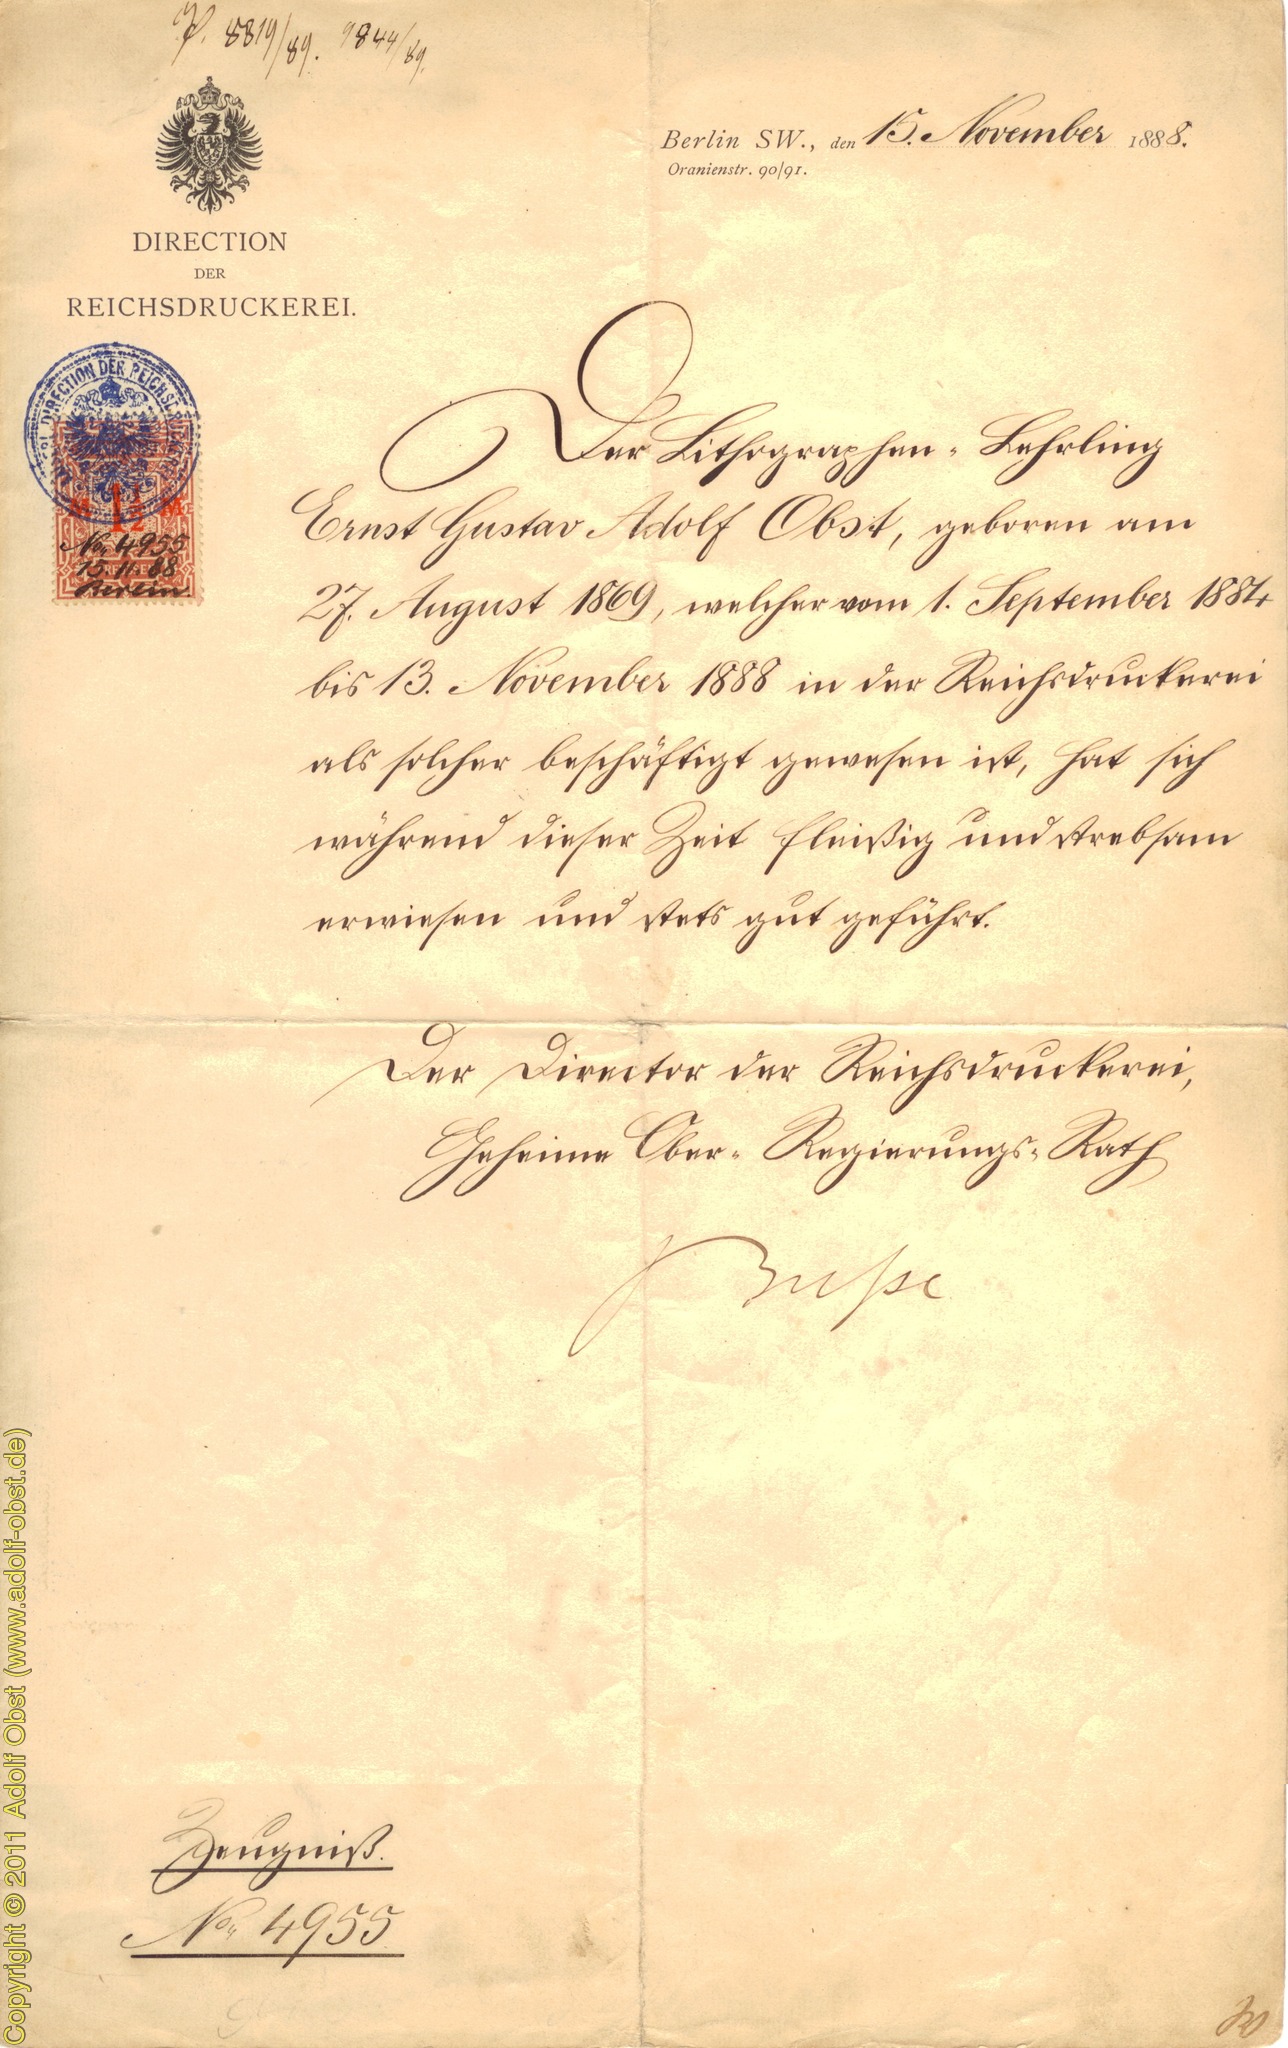 P. 8819/89. 9844/89.
Berlin SW., den 15. November 1888.
Oranienstr. 90/91.
DIRECTION
DER
REICHSDRUCKEREI.
DIRECTION DER REICHSDRUCKEREI
M 1½ M
No. 4955
15.11.88
Berlin.
Der Lithographen-Lehrling
Ernst Gustav Adolf Obst, geboren am
27. August 1869, welcher vom 1. September 1884
bis 13. November 1888 in der Reichsdruckerei
als solcher beschäftigt gewesen ist, hat sich
während dieser Zeit fleißig und strebsam
erwiesen und stets gut geführt.
Der Director der Reichsdruckerei,
Geheime Ober-Regierungs-Rath
Busse
Zeugniß.
No. 4955
Copyright © 2011 Adolf Obst (www.adolf-obst.de)